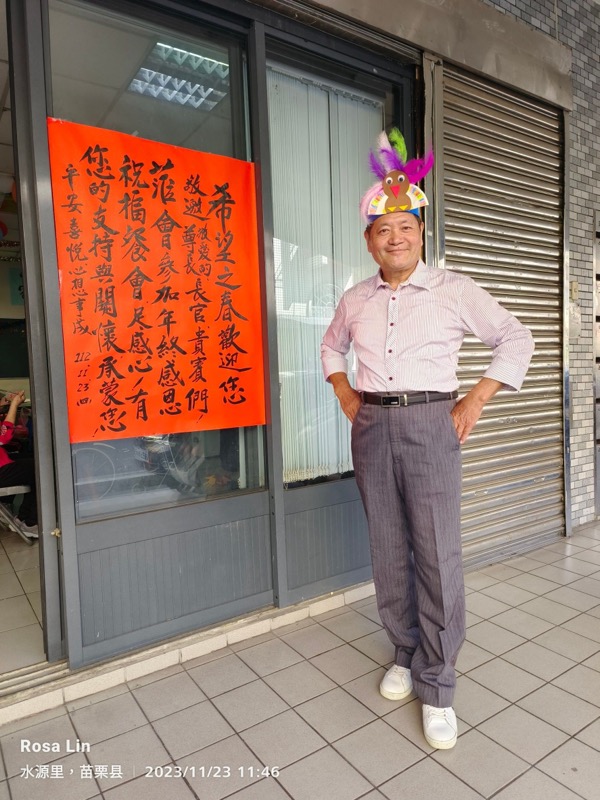 希望之春歡迎您
敬邀敬愛的
尊長、長官、貴賓們,
蒞會參加年終感恩
祝福餐會,足感心!有
您的支持與關懷承蒙您!
平安喜悅心想事成。
112.11.23.四
Rosa Lin
水源里，苗栗县 | 2023/11/23 11:46